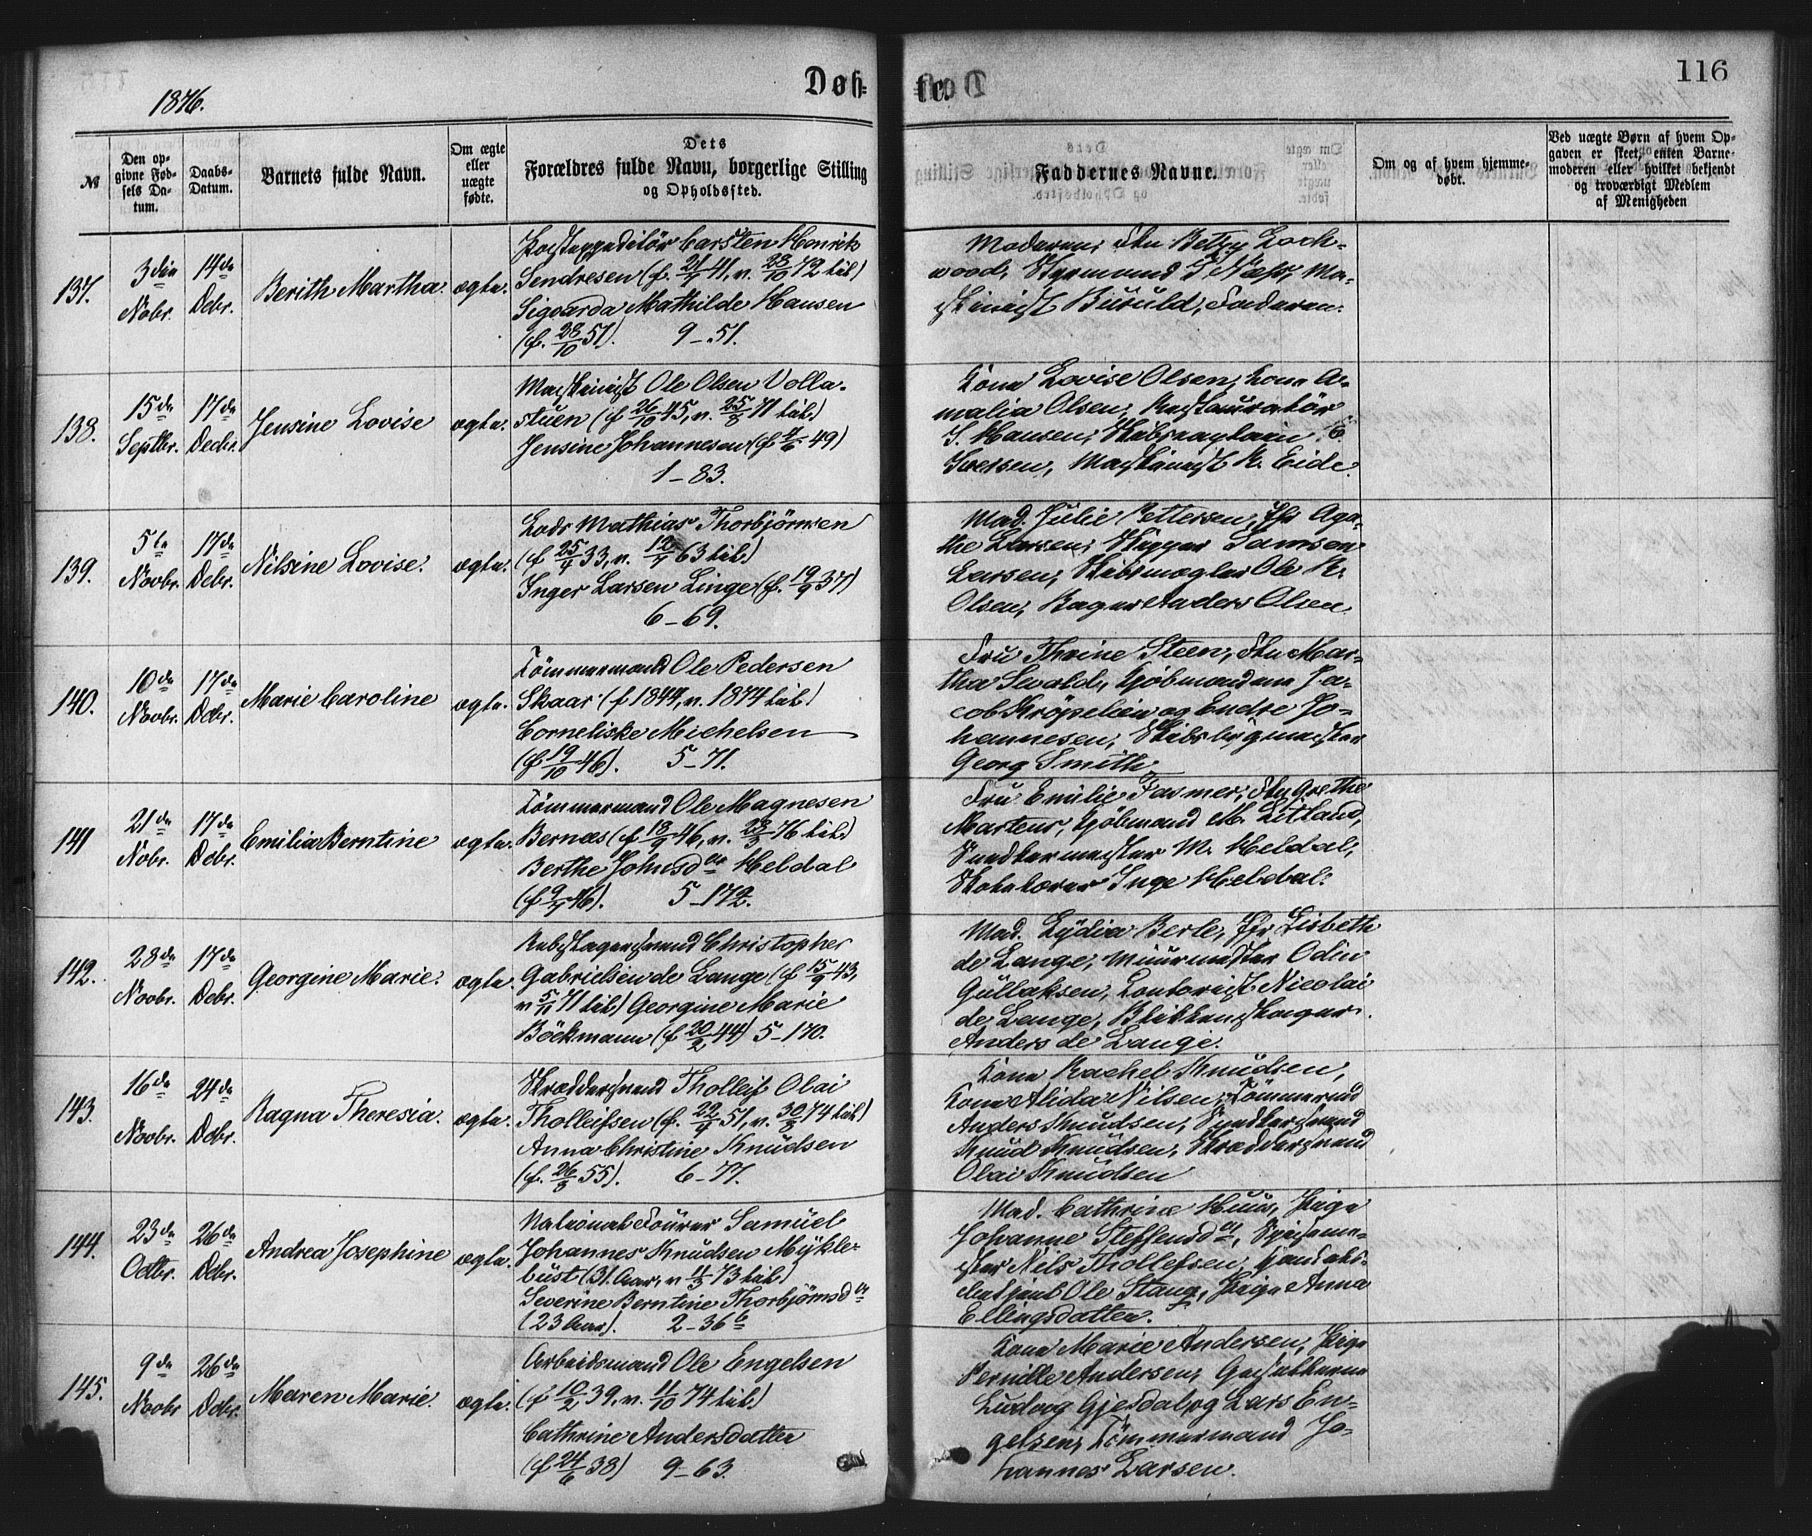 1876.
Døb-
te.
116
№
Den op-
givne Fød-
sels Da-
tum.
Daabs-
Datum.
Barnets fulde Navn.
Om ægte
eller
uægte
fødte.
Dets
Forældres fulde Navn, borgerlige Stilling
og Opholdssted.
Faddernes Navne.
Om og af hvem hjemme-
døbt.
Ved uægte Børn af hvem Op-
gaven er skeet, enten Barne-
moderen eller hvilket bekjendt
og troværdigt Medlem
af Menigheden
137.
3die
Nobr.
14de
Debr.
Berith Martha.
ægte.
Carsten Henrik
Sendresen (f. 21/9 41, v. 28/10 72 hib)
Sigvarda Mathilde Hansen
(f. 28/10 51). 9-51.
Moderen, Fru Betzy Lock-
wood, Sygmund T. Næss, Ma-
skinist Buruld, Faderen.
138.
15de
Septbr.
17de
Decbr.
Jensine Lovise
ægte.
Maskinist Ole Olsen Volla-
stuen (f 26/10 45, v. 25/8 71 hib)
Jensine Johannesen (f 4/6 49)
1-83.
Kone Lovise Olsen, kone A-
malia Olsen, Restauratør
S. Hansen, Skibscaptain
Iversen, Maskinist K. Eide.
139.
5te
Novbr.
17de
Debr.
Nilsine Lovise.
ægte.
Lods Mathias Thorbjörnsen
(f 25/4 33, v. 12/7 63 hib)
Inger Larsen Linge (f. 19/9 37)
6-69.
Mad. Julie Pettersen, Jfr Aga-
the Larsen, Skipper Samson
Larsen, Skibsmægler Ole K.
Olsen, Bager Anders Olsen
140.
10de
Novbr.
17de
Debr.
Marie Caroline
ægte.
Tömmermand Ole Pedersen
Skaar (f 1844, v. 1874 hib)
Corneliske Michelsen
(f 19/10 46). 5-71.
Fru Thrine Steen, Fru Mar-
tha Sevold, Kjöbmændene Ja-
cob Kröpelien og Endre Jo-
hannesen, Skibsbygmester
Georg Smith
141
21de
Nobr.
17de
Debr.
Emilia Berntine
ægte.
Tömmermand Ole Magnesen
Bernæs (f 18/9 46, v. 23/3 76 hib)
Berthe Johnsdtr Heldal
(f 9/7 46). 5-172.
Fru Emilie Fasmer, Fru Grethe
Martens, Kjöbmand M. Litland,
Snedkermester M. Heldal,
Skolelærer Inge Heldal.
142.
28de
Novbr.
17de
Debr.
Georgine Marie.
ægte.
Rebslagersvend Christopher
Gabrielsen de Lange (f 15/9 43,
v 5/11 71 hib) Georgine Marie
Böckmann (f 20/2 44) 5-170.
Mad. Lydia Berle, Jfr Lisbeth
de Lange, Muurmester Odin
Gullaksen, Contorist Nicolai
de Lange, Blikkenslager
Anders de Lange.
143.
16de
Novbr.
24de
Debr.
Ragna Theresia.
ægte.
Skræddersvend Tholleif Olai
Tholleifsen (f. 22/4 51, v. 30/8 74 hib)
Anna Christine Knudsen
(f. 26/3 55). 6-77.
Kone Rachel Knudsen,
Kone Alida Nilsen, Tömmermd
Anders Knudsen, Snedkersvend
Knud Knudsen, Skræddersvend
Olai Knudsen
144.
23de
Octbr.
26de
Debr.
Andrea Josephine
ægte.
National Fourer Samuel
Johannes Knudsen Mykle-
bust (31 Aar, v 11/3 73 hib)
Severine Berntine Thorbjörnsdtr
(23 Aar). 2-36b
Mad. Cathrine Huus, Pige
Johanne Steffensdtr,
Nils Thollefsen,
Ole Stang, Pige Anna
Ellingsdatter.
145.
9de
Novbr
26de
Debr.
Maren Marie.
ægte.
Arbeidsmand Ole Engelsen
(f 10/2 39, v. 11/10 74 hib)
Cathrine Andersdatter
(f 24/6 38) 9-63.
Kone Marie Andersen, Pige
Pernille Andersen,
Ludvog Gjesdal og Lars En-
gelsen, Tömmermand Jo-
hannes Larsen.